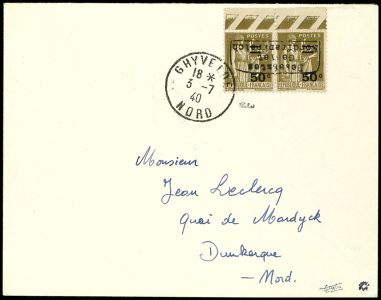 POSTES POSTES
50c 50c
GHYVELDE
18 *
3 -7
40
NORD
Monsieur
Jean Leclercq
Quai de Mardyck
Dunkerque
- Nord.